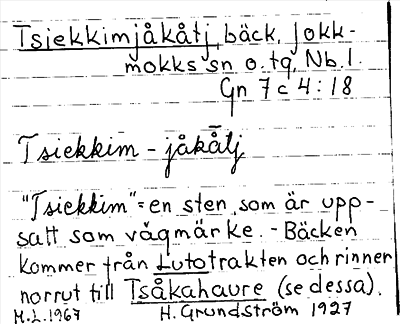 Tsiekkimjåkåtj, bäck, Jokk-
mokks sn o. tg, Nb. l.
Gn 7 c 4:18
Tsiekkim - jåkåt̄j
"Tsiekkim" = en sten som är upp-
satt som vägmärke. - Bäcken
kommer från Lutotrakten och rinner
norrut till Tsåkahaure (se dessa).
M.L. 1967 H. Grundström 1927